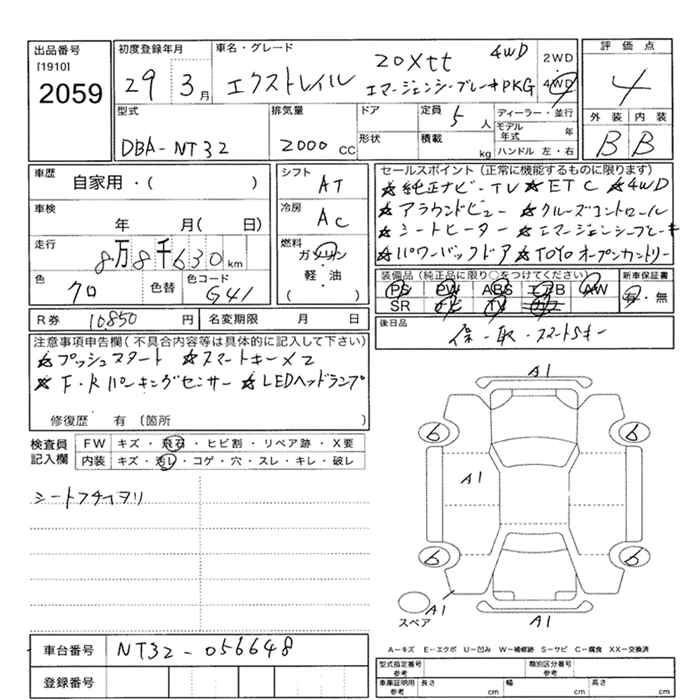 出品番号
[1910]
2059
初度登録年月
29年 3月
車名・グレード
エクストレイル
20Xtt 4WD
エマージェンシーブレーキPKG
2WD
4WD
評価点
4
外装 内装
B B
型式
DBA-NT32
排気量
2000 CC
ドア
形状
定員 5人
積載 kg
ディーラー・並行
モデル年式 年
ハンドル 左・右
車歴
自家用・( )
車検
年 月( 日)
走行
8万8千630 km
色
クロ
色替
色コード
G41
シフト
AT
冷房
AC
燃料
ガソリン
軽・油
( )
セールスポイント (正常に機能するものに限ります)
★純正ナビ-TV ★ETC ★4WD
★アラウンドビュー ★クルーズコントロール
★シートヒーター ★エマージェンシーブレーキ
★パワーバックドア ★TOYOオープンカントリー
装備品 (純正品に限り○をつけてください)
PS PW ABS エアB AW
SR ナビ TV カワ
新車保証書
有・無
R券 10850 円
名変期限 月 日
後日品
保-取-スマートキー
注意事項申告欄(不具合内容等は具体的に記入して下さい)
★プッシュスタート ★スマートキー×2
★F・Rパーキングセンサー ★LEDヘッドランプ
修復歴 有 (箇所 )
検査員記入欄
FW キズ・飛石・ヒビ割・リペア跡・X要
内装 キズ・汚れ・コゲ・穴・スレ・キレ・破レ
A1
6 6
A1
6 6
スペア
A1
A1
A-キズ E-エクボ U-凹み W-補修跡 S-サビ C-腐食 XX-交換済
車台番号 NT32-056648
登録番号
型式指定番号 参考
類別区分番号 参考
車庫証明用 参考
長さ cm
幅 cm
高さ cm